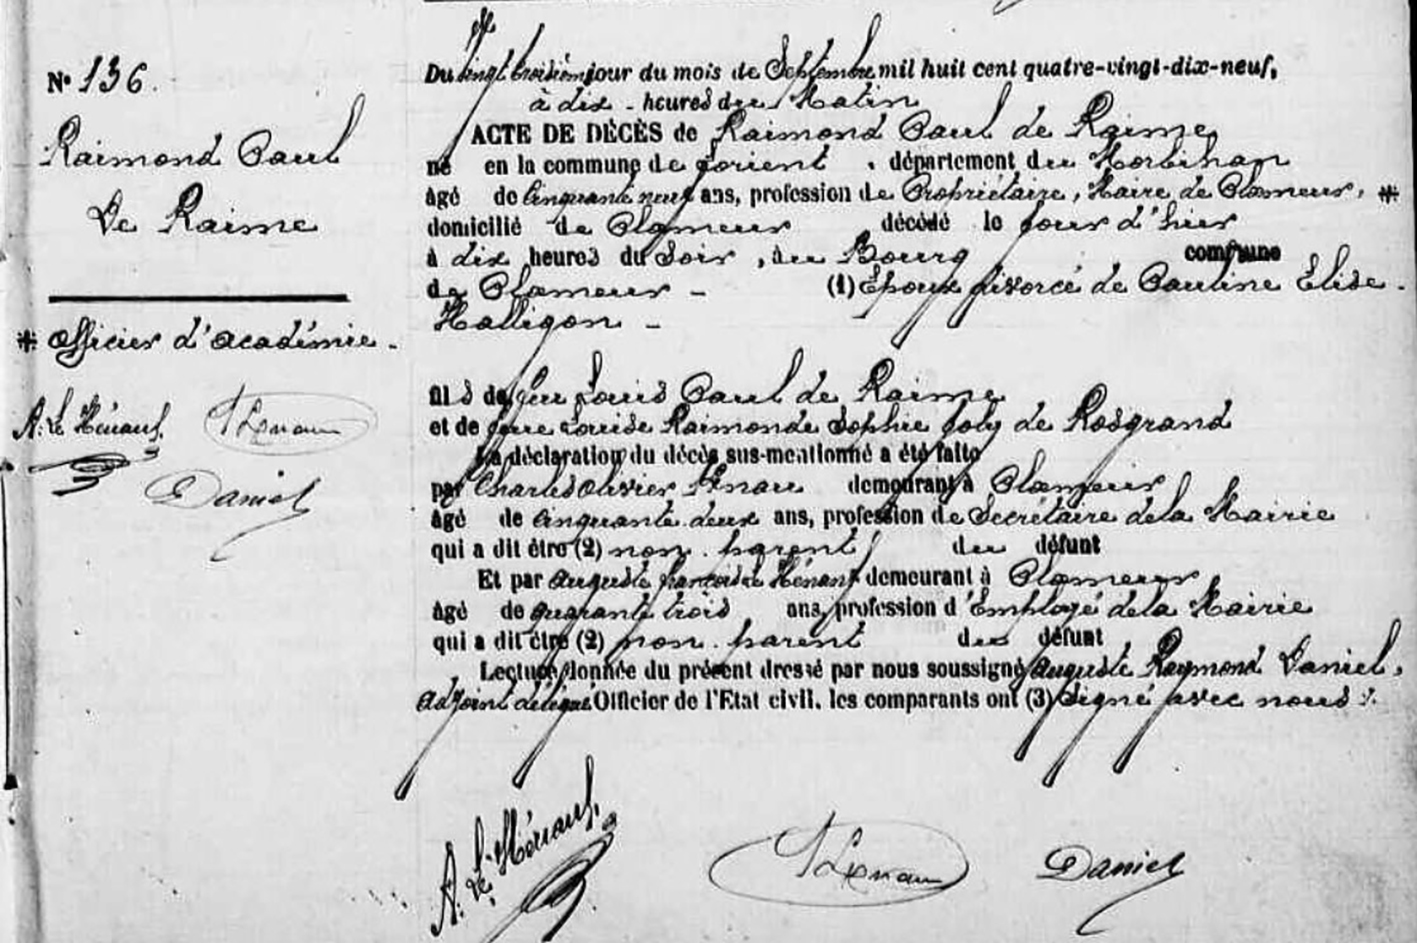 N° 136.
Raimond Paul
De Raime
* Officier d'Académie.
A. Le Hénanf.
Daniel
Du vingt troisième jour du mois de Septembre mil huit cent quatre-vingt-dix-neuf,
à dix heures du Matin
ACTE DE DÉCÈS de Raimond Paul de Raime,
né en la commune de Lorient, département du Morbihan
âgé de Cinquante neuf ans, profession de Propriétaire, Maire de Plœmeur, *
domicilié de Plœmeur décédé le jour d'hier
à dix heures du Soir, au Bourg commune
de Plœmeur - (1) Epoux divorcé de Pauline Elise
Halligon -
fils de feu Louis Paul de Raime
et de feue Louise Raimonde Sophie Joly de Rosgrand
La déclaration du décès sus-mentionné a été faite
par Charles Olivier demeurant à Plœmeur
âgé de Cinquante deux ans, profession de Secrétaire de la Mairie
qui a dit être (2) non parent du défunt
Et par Auguste François Le Hénanf demeurant à Plœmeur
âgé de quarante trois ans, profession d'Employé de la Mairie
qui a dit être (2) non parent du défunt
Lecture donnée du présent dressé par nous soussigné Auguste Raymond Daniel,
adjoint délégué Officier de l'Etat civil, les comparants ont (3) Signé avec nous ./.
A. Le Hénanf.
Daniel